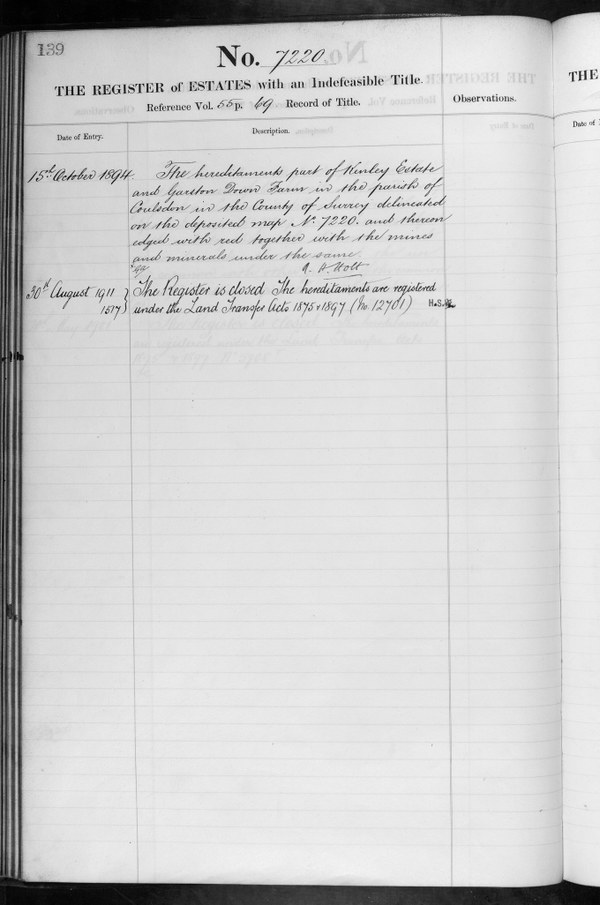 139
No. 7220.
THE REGISTER of ESTATES with an Indefeasible Title.
Reference Vol. 55 p. 69 Record of Title.
Observations.
Date of Entry.
Description.
15th October 1894.
The hereditaments part of Kenley Estate
and Garston Down Farm in the parish of
Coulsdon in the County of Surrey delineated
on the deposited map No. 7220. and thereon
edged with red together with the mines
and minerals under the same
30th August 1911
1517
The Register is closed The hereditaments are registered
under the Land Transfer Acts 1875 & 1897 (No. 12701)
THE
Date of